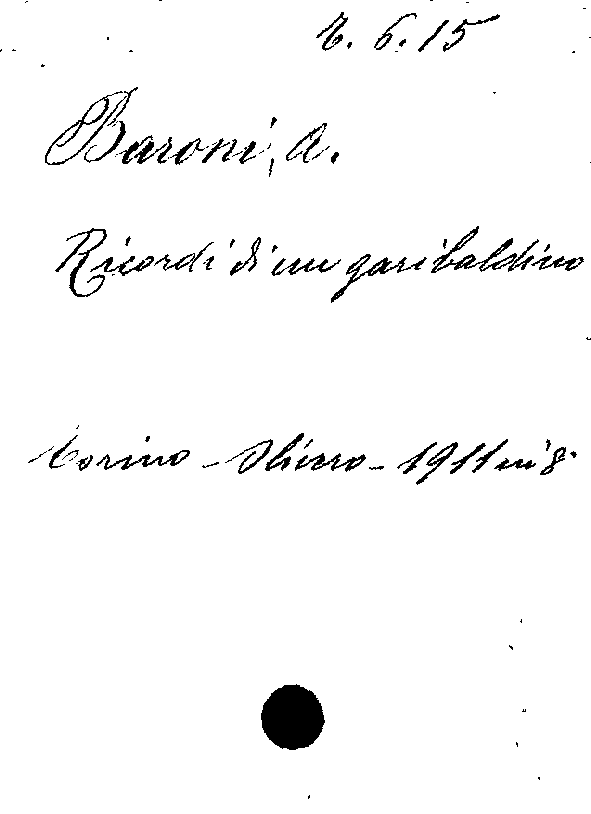 6.15
Baroni, A.
Ricordi di un garibaldino
Torino - - 1911 in 8°